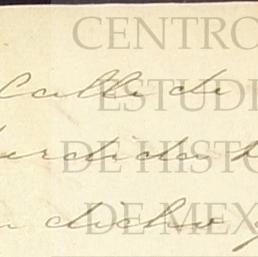 CENTRO
Calle de
ESTUDI
DE HISTO
dicho
DE MEX